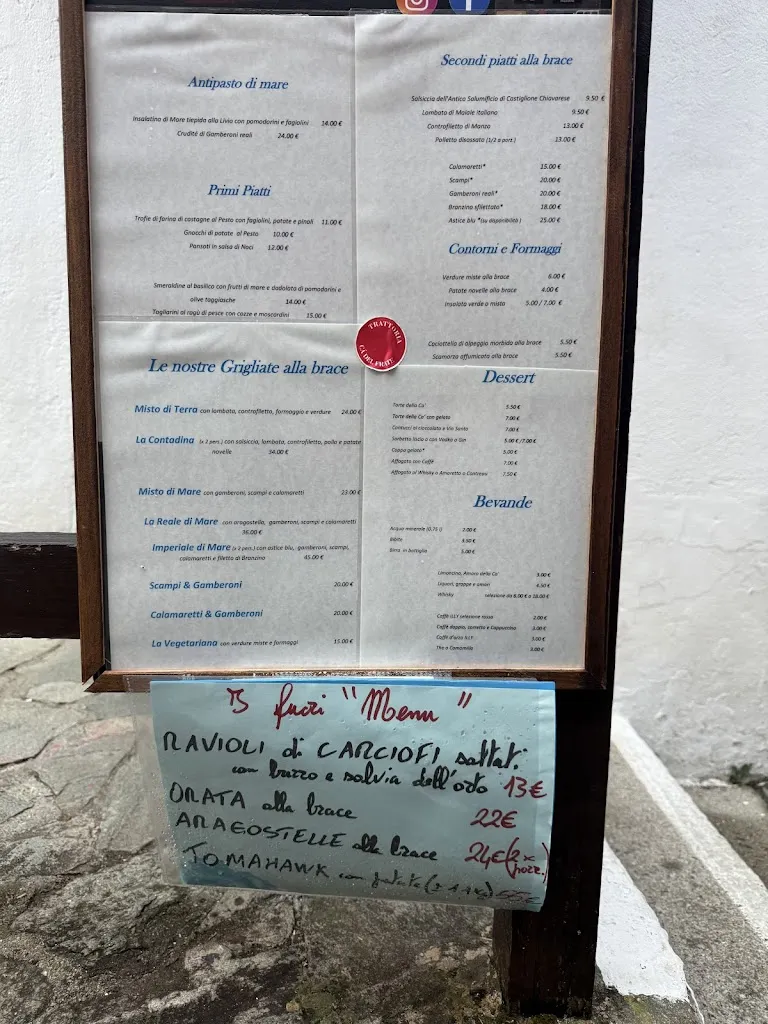 Antipasto di mare
Insalatina di Mare tiepida alla Livia con pomodorini e fagiolini 14.00 €
Crudité di Gamberoni reali 24.00 €
Primi Piatti
Trofie di farina di castagne al Pesto con fagiolini, patate e pinoli 11.00 €
Gnocchi di patate al Pesto 10.00 €
Pansoti in salsa di Noci 12.00 €
Smeraldine al basilico con frutti di mare e dadolata di pomodorini e
olive taggiasche 14.00 €
Tagliarini al ragù di pesce con cozze e moscardini 15.00 €
Secondi piatti alla brace
Salsiccia dell'Antico Salumificio di Castiglione Chiavarese 9.50 €
Lombata di Maiale italiano 9.50 €
Controfiletto di Manzo 13.00 €
Polletto disossato (1/2 a porz.) 13.00 €
Calamaretti* 15.00 €
Scampi* 20.00 €
Gamberoni reali* 20.00 €
Branzino sfilettato* 18.00 €
Astice blu *(su disponibilità) 25.00 €
Contorni e Formaggi
Verdure miste alla brace 6.00 €
Patate novelle alla brace 4.00 €
Insalata verde o mista 5.00 / 7.00 €
Caciottella di alpeggio morbida alla brace 5.50 €
Scamorza affumicata alla brace 5.50 €
TRATTORIA
CÀ DEL FRATE
Le nostre Grigliate alla brace
Misto di Terra con lombata, controfiletto, formaggio e verdure 24.00 €
La Contadina (x 2 pers.) con salsiccia, lombata, controfiletto, pollo e patate
novelle 34.00 €
Misto di Mare con gamberoni, scampi e calamaretti 23.00 €
La Reale di Mare con aragostella, gamberoni, scampi e calamaretti
36.00 €
Imperiale di Mare (x 2 pers.) con astice blu, gamberoni, scampi,
calamaretti e filetto di Branzino 45.00 €
Scampi & Gamberoni 20.00 €
Calamaretti & Gamberoni 20.00 €
La Vegetariana con verdure miste e formaggi 15.00 €
Dessert
Torte della Ca' 5.50 €
Torte della Ca' con gelato 7.00 €
Cantucci al cioccolato e Vin Santo 7.00 €
Sorbetto liscio o con Vodka o Gin 5.00 € /7.00 €
Coppa gelato* 5.00 €
Affogato con Caffè 7.00 €
Affogato al Whisky o Amaretto o Cointreau 7.50 €
Bevande
Acqua minerale (0.75 l) 2.00 €
Bibite 3.50 €
Birra in bottiglia 5.00 €
Limoncino, Amaro della Ca' 3.00 €
Liquori, grappe e amari 4.50 €
Whisky selezione da 6.00 € a 18.00 €
Caffè ILLY selezione rossa 2.00 €
Caffè doppio, corretto e Cappuccino 3.00 €
Caffè d'orzo ILLY 3.00 €
The o Camomilla 3.00 €
I fuori "Menu"
RAVIOLI di CARCIOFI saltati
con burro e salvia dell'orto 13€
ORATA alla brace 22€
ARAGOSTELLE alla brace 24€ (2 x porz.)
TOMAHAWK con patate